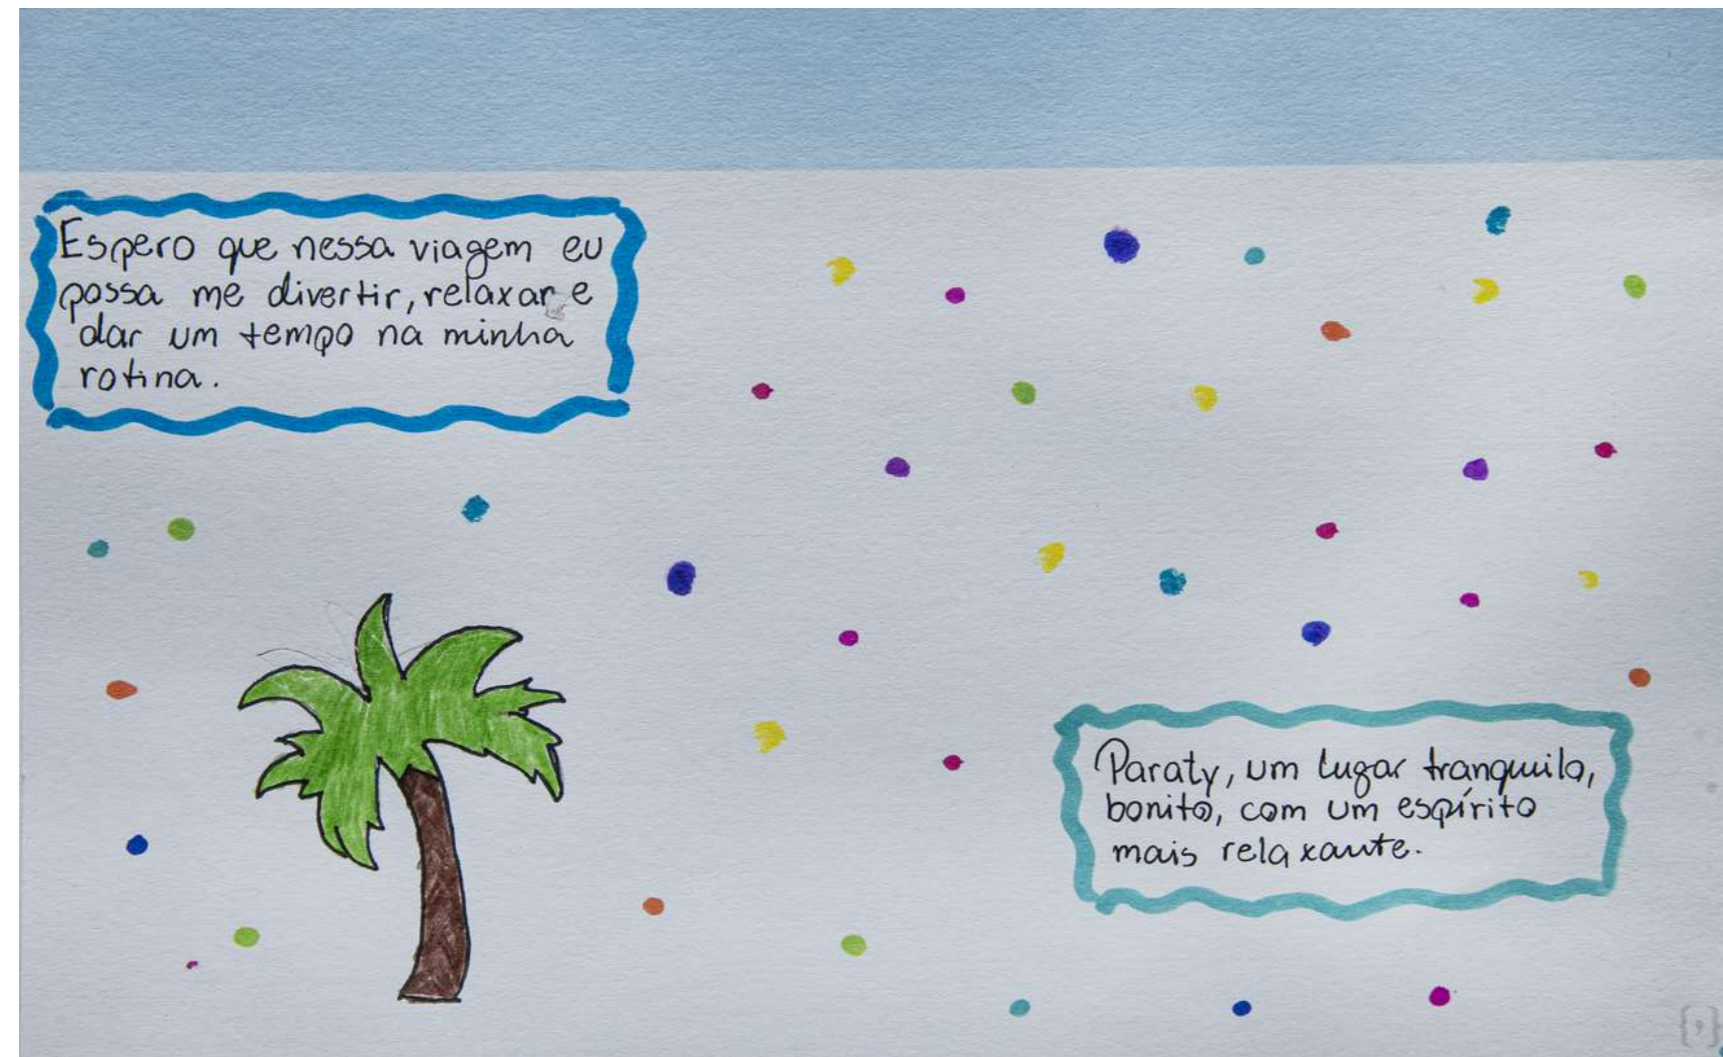 Espero que nessa viagem eu
possa me divertir, relaxar e
dar um tempo na minha
rotina.
Paraty, um lugar tranquilo,
bonito, com um espírito
mais relaxante.
{9}